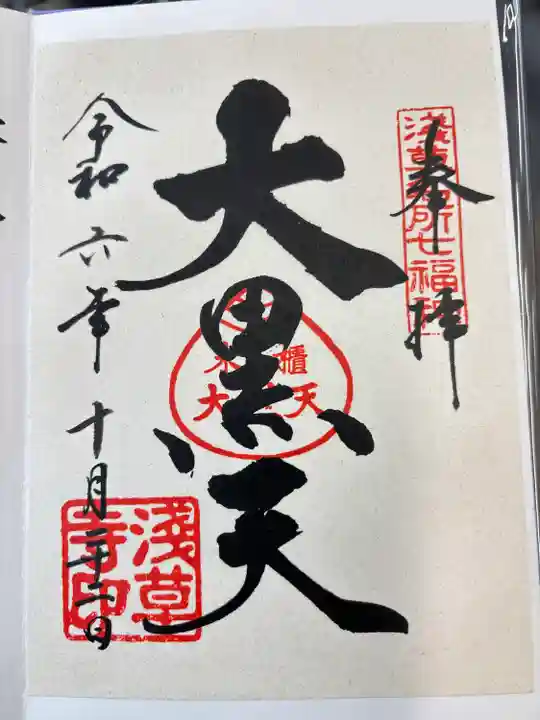 奉拝
淺草名所七福神
大黒天
米櫃
大黒天
令和六年十月二十二日
淺草
寺印